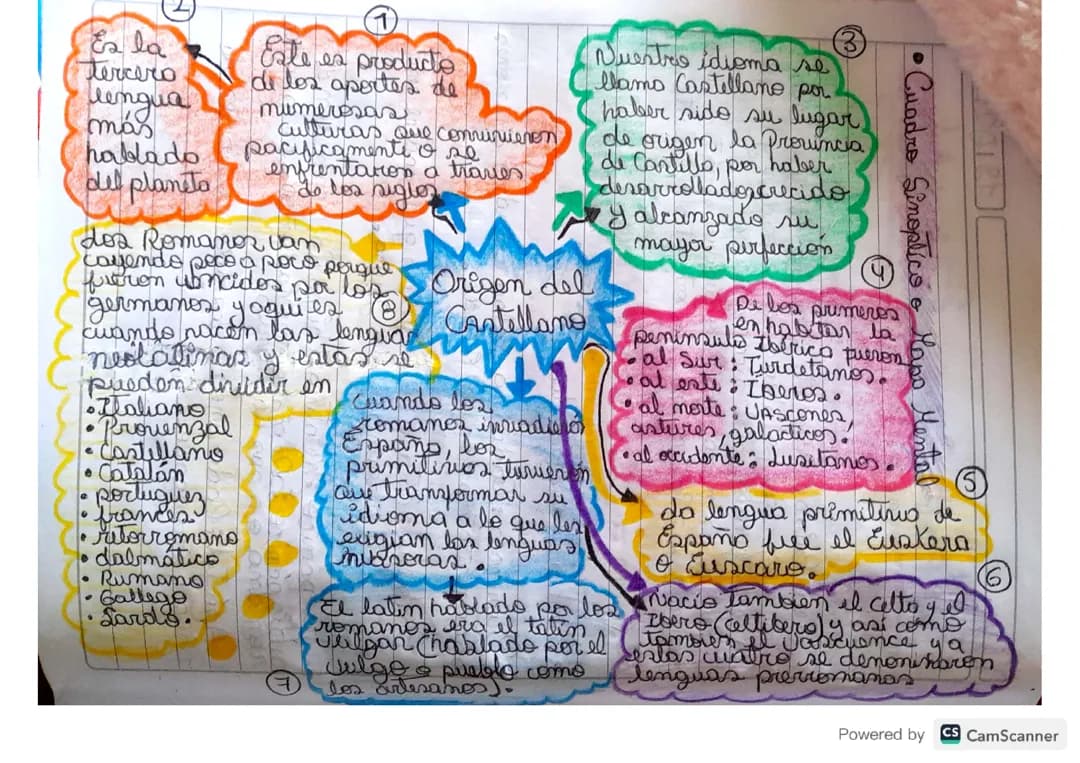 • Cuadro Sinoptico o Mapa Mental
Origen del
Castellano
1
Este es producto
de los aportes de
numerosas
culturas que convivieron
pacificamente o se
enfrentaron a traves
de los siglos
2
Es la
tercera
lengua
más
hablada
del planeta
3
Nuestro idioma se
llamo Castellano por
haber sido su lugar
de origen la Provincia
de Castilla, por haber
desarrollado, crecido
y alcanzado su
mayor perfección
4
De los primeros
en habitar la
peninsula Iberica fueron
• al Sur: Turdetanos.
• al este: Iberos.
• al norte: Vascones
astures, galacticos.
• al occidente: Lusitanos.
5
La lengua primitiva de
España fue el Euskera
o Euscaro.
6
Nacio Tambien el celta y el
Ibero (celtibero) y asi como
tambien el Vascuence y a
estas cuatro se denominaron
lenguas prerromanas
Cuando los
romanos invadieron
España, los
primitivos tuvieron
que transformar su
idioma a lo que les
exigian las lenguas
invasoras.
7
El latin hablado por los
romanos era el latin
vulgar (hablado por el
vulgo o pueblo como
los artesanos).
8
Los Romanos van
cayendo poco a poco porque
fueron vencidos por los
germanos y aqui es
cuando nacen las lenguas
neolatinas y estas se
pueden dividir en
• Italiano
• Provenzal
• Castellano
• Catalán
• portugues
• frances
• retorromano
• dalmático
• Rumano
• Gallego
• Sardo.
Powered by CS CamScanner